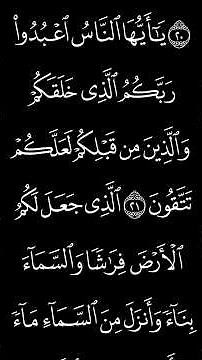 ٢٠ يَٰٓأَيُّهَا ٱلنَّاسُ ٱعۡبُدُواْ
رَبَّكُمُ ٱلَّذِي خَلَقَكُمۡ
وَٱلَّذِينَ مِن قَبۡلِكُمۡ لَعَلَّكُمۡ
تَتَّقُونَ ٢١ ٱلَّذِي جَعَلَ لَكُمُ
ٱلۡأَرۡضَ فِرَٰشٗا وَٱلسَّمَآءَ
بِنَآءٗ وَأَنزَلَ مِنَ ٱلسَّمَآءِ مَآءٗ